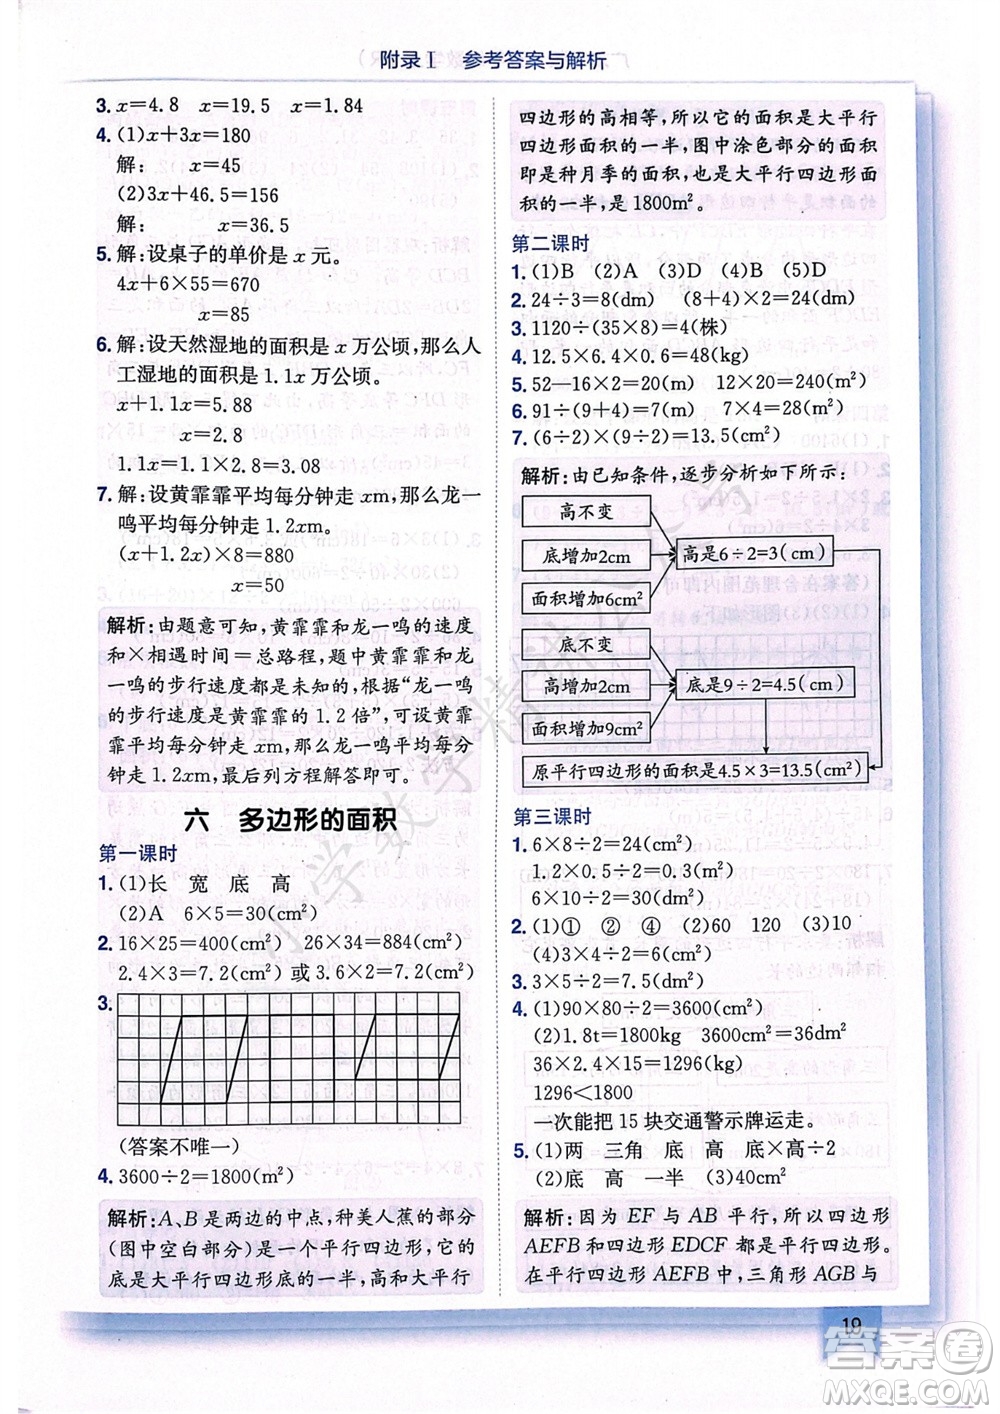 附录Ⅰ 参考答案与解析
3. x=4.8 x=19.5 x=1.84
4. (1)x+3x=180
解: x=45
(2)3x+46.5=156
解: x=36.5
5. 解:设桌子的单价是 x 元。
4x+6×55=670
x=85
6. 解:设天然湿地的面积是 x 万公顷,那么人
工湿地的面积是 1.1x 万公顷。
x+1.1x=5.88
x=2.8
1.1x=1.1×2.8=3.08
7. 解:设黄霏霏平均每分钟走 xm,那么龙一
鸣平均每分钟走 1.2xm。
(x+1.2x)×8=880
x=50
解析:由题意可知,黄霏霏和龙一鸣的速度
和×相遇时间=总路程,题中黄霏霏和龙
一鸣的步行速度都是未知的,根据“龙一鸣
的步行速度是黄霏霏的 1.2 倍”,可设黄霏
霏平均每分钟走 xm,那么龙一鸣平均每分
钟走 1.2xm,最后列方程解答即可。
六 多边形的面积
第一课时
1. (1)长 宽 底 高
(2)A 6×5=30(cm²)
2. 16×25=400(cm²) 26×34=884(cm²)
2.4×3=7.2(cm²) 或 3.6×2=7.2(cm²)
3.
(答案不唯一)
4. 3600÷2=1800(m²)
解析:A、B 是两边的中点,种美人蕉的部分
(图中空白部分)是一个平行四边形,它的
底是大平行四边形底的一半,高和大平行
四边形的高相等,所以它的面积是大平行
四边形面积的一半,图中涂色部分的面积
即是种月季的面积,也是大平行四边形面
积的一半,是 1800m²。
第二课时
1. (1)B (2)A (3)D (4)B (5)D
2. 24÷3=8(dm) (8+4)×2=24(dm)
3. 1120÷(35×8)=4(株)
4. 12.5×6.4×0.6=48(kg)
5. 52-16×2=20(m) 12×20=240(m²)
6. 91÷(9+4)=7(m) 7×4=28(m²)
7. (6÷2)×(9÷2)=13.5(cm²)
解析:由已知条件,逐步分析如下所示:
高不变
底增加2cm
面积增加6cm²
高是6÷2=3(cm)
底不变
高增加2cm
面积增加9cm²
底是9÷2=4.5(cm)
原平行四边形的面积是4.5×3=13.5(cm²)
第三课时
1. 6×8÷2=24(cm²)
1.2×0.5÷2=0.3(m²)
6×10÷2=30(cm²)
2. (1)① ② ④ (2)60 120 (3)10
(4)3×4÷2=6(cm²)
3. 3×5÷2=7.5(cm²)
4. (1)90×80÷2=3600(cm²)
(2)1.8t=1800kg 3600cm²=36dm²
36×2.4×15=1296(kg)
1296<1800
一次能把 15 块交通警示牌运走。
5. (1)两 三角 底 高 底×高÷2
(2)底 高 一半 (3)40cm²
解析:因为 EF 与 AB 平行,所以四边形
AEFB 和四边形 EDCF 都是平行四边形。
在平行四边形 AEFB 中,三角形 AGB 与
19
答案圈
MXQE.COM